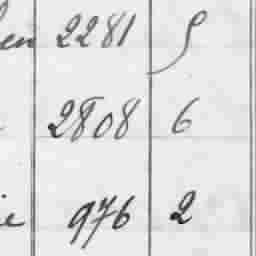 en 2281 9
2808 6
ie 976 2